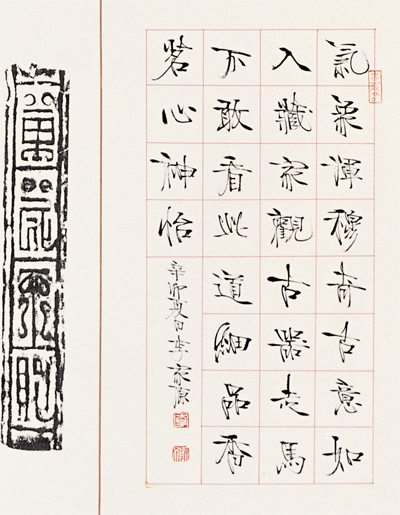 氣象渾穆奇古意如
入藏家觀古器走馬
不敢看此道細品香
茗心神怡
辛卯夏日李家